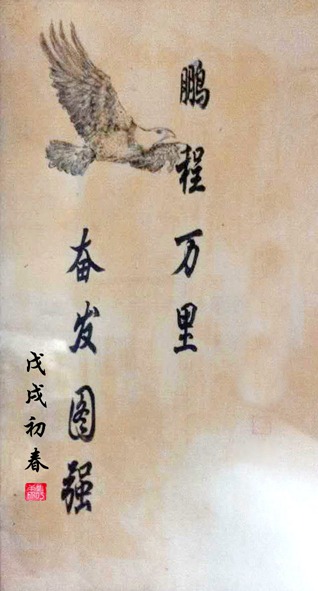 鹏程万里
奋发图强
戊戌初春